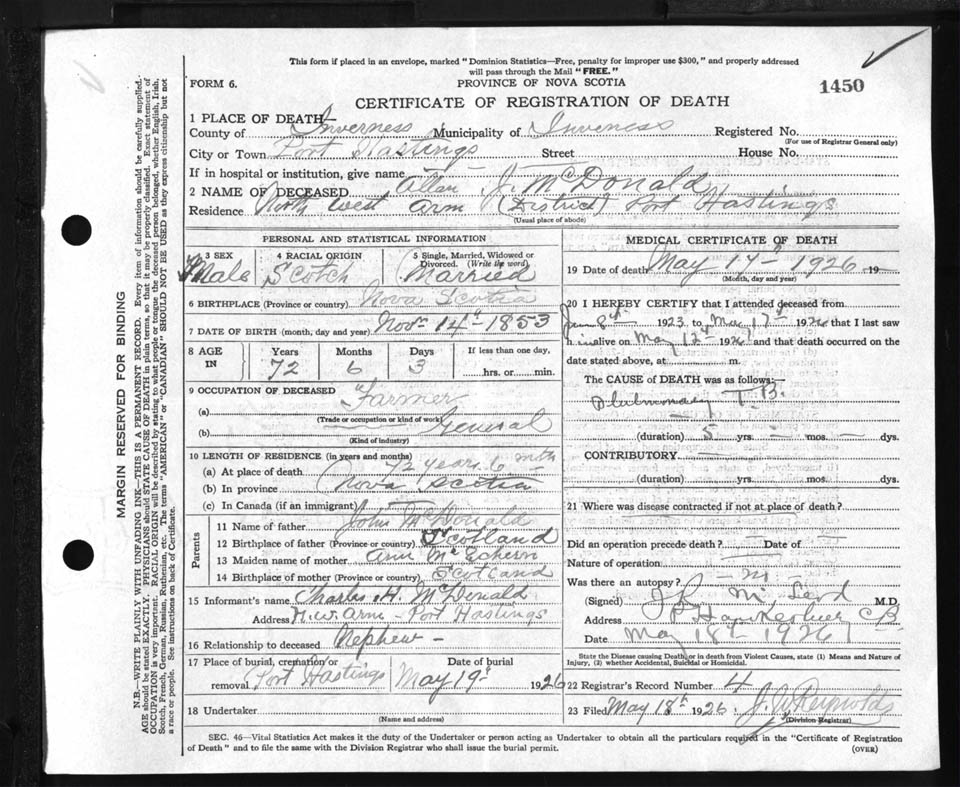 This form if placed in an envelope, marked "Dominion Statistics—Free, penalty for improper use $300," and properly addressed
will pass through the Mail "FREE."
FORM 6.
PROVINCE OF NOVA SCOTIA
1450
CERTIFICATE OF REGISTRATION OF DEATH
1 PLACE OF DEATH
County of Inverness Municipality of Inverness Registered No.
(For use of Registrar General only)
City or Town Port Hastings Street House No.
If in hospital or institution, give name
2 NAME OF DECEASED Allan J. McDonald
Residence North West Arm (District) Port Hastings
(Usual place of abode)
PERSONAL AND STATISTICAL INFORMATION
3 SEX Male
4 RACIAL ORIGIN Scotch
5 Single, Married, Widowed or Divorced. (Write the word) Married
6 BIRTHPLACE (Province or country) Nova Scotia
7 DATE OF BIRTH (month, day and year) Nov 14th 1853
8 AGE IN
Years Months Days If less than one day,
72 6 3 hrs. or min.
9 OCCUPATION OF DECEASED Farmer
(a)
(Trade or occupation or kind of work)
(b) General
(Kind of industry)
10 LENGTH OF RESIDENCE (in years and months)
(a) At place of death 72 years 6 mths
(b) In province Nova Scotia
(c) In Canada (if an immigrant)
Parents
11 Name of father John McDonald
12 Birthplace of father (Province or country) Scotland
13 Maiden name of mother Ann McEchern
14 Birthplace of mother (Province or country) Scotland
15 Informant's name Charles H. McDonald
Address N. W. Arm - Port Hastings
16 Relationship to deceased Nephew -
17 Place of burial, cremation or removal Port Hastings
Date of burial May 19th 1926
18 Undertaker
(Name and address)
MEDICAL CERTIFICATE OF DEATH
19 Date of death May 17 - 1926 19
(Month, day and year)
20 I HEREBY CERTIFY that I attended deceased from
8th 1923 to May 17th 1926 that I last saw
him alive on May 12th 1926 and that death occurred on the
date stated above, at m.
The CAUSE OF DEATH was as follows:
Pulmonary T.B.
(duration) 5 yrs. - mos. - dys.
CONTRIBUTORY
(duration) yrs. mos. dys.
21 Where was disease contracted if not at place of death?
Did an operation precede death? Date of
Nature of operation
Was there an autopsy?
(Signed) McLeod M.D.
Address Pt Hawkesbury CB
Date May 18th 1926
State the Disease causing Death, or in death from Violent Causes, state (1) Means and Nature of
Injury, (2) whether Accidental, Suicidal or Homicidal.
22 Registrar's Record Number 4
23 Filed May 18th 1926 J. W. Reynolds
(Division Registrar)
SEC. 46—Vital Statistics Act makes it the duty of the Undertaker or person acting as Undertaker to obtain all the particulars required in the "Certificate of Registration
of Death" and to file the same with the Division Registrar who shall issue the burial permit.
(OVER)
MARGIN RESERVED FOR BINDING
N.B.—WRITE PLAINLY WITH UNFADING INK—THIS IS A PERMANENT RECORD. Every item of information should be carefully supplied.
AGE should be stated EXACTLY. PHYSICIANS should STATE CAUSE OF DEATH in plain terms, so that it may be properly classified. Exact statement of
OCCUPATION is very important. RACIAL ORIGIN will be described by stating to what people or tongue the deceased person belonged, whether English, Irish,
Scotch, French, German, Russian, Ruthenian, etc. The terms "AMERICAN" or "CANADIAN" SHOULD NOT BE USED as they express citizenship but not
a race or people. See instructions on back of Certificate.